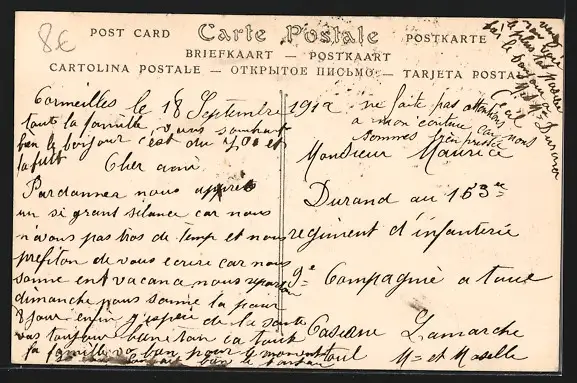 8€
POST CARD Carte Postale POSTKARTE
BRIEFKAART — POSTKAART
CARTOLINA POSTALE — ОТКРЫТОЕ ПИСЬМО — TARJETA POSTAL
Cormeilles le 18 Septembre 1912
toute la famille vous souhait
ben le bonjour c'est du
Cher ami
Pardonner nous apprès
un si grant silance car nous
n'avons pas tros de temp et nous
profiton de vous ecrire car nous
somme ent vacance nous
dimanche nous somme la pour
8 jour enfin j'espère de la sante
vas toujour bane ton ca toute
la famille va ban pour le moment
ne faite pas attention
a mon ecriture car nous
sommes bien pressée
Monsieur Maurice
Durand au 153 me
regiment d'infanterie
9e Compagnie a toul
Caserne Lamarche
toul Mte et Moselle